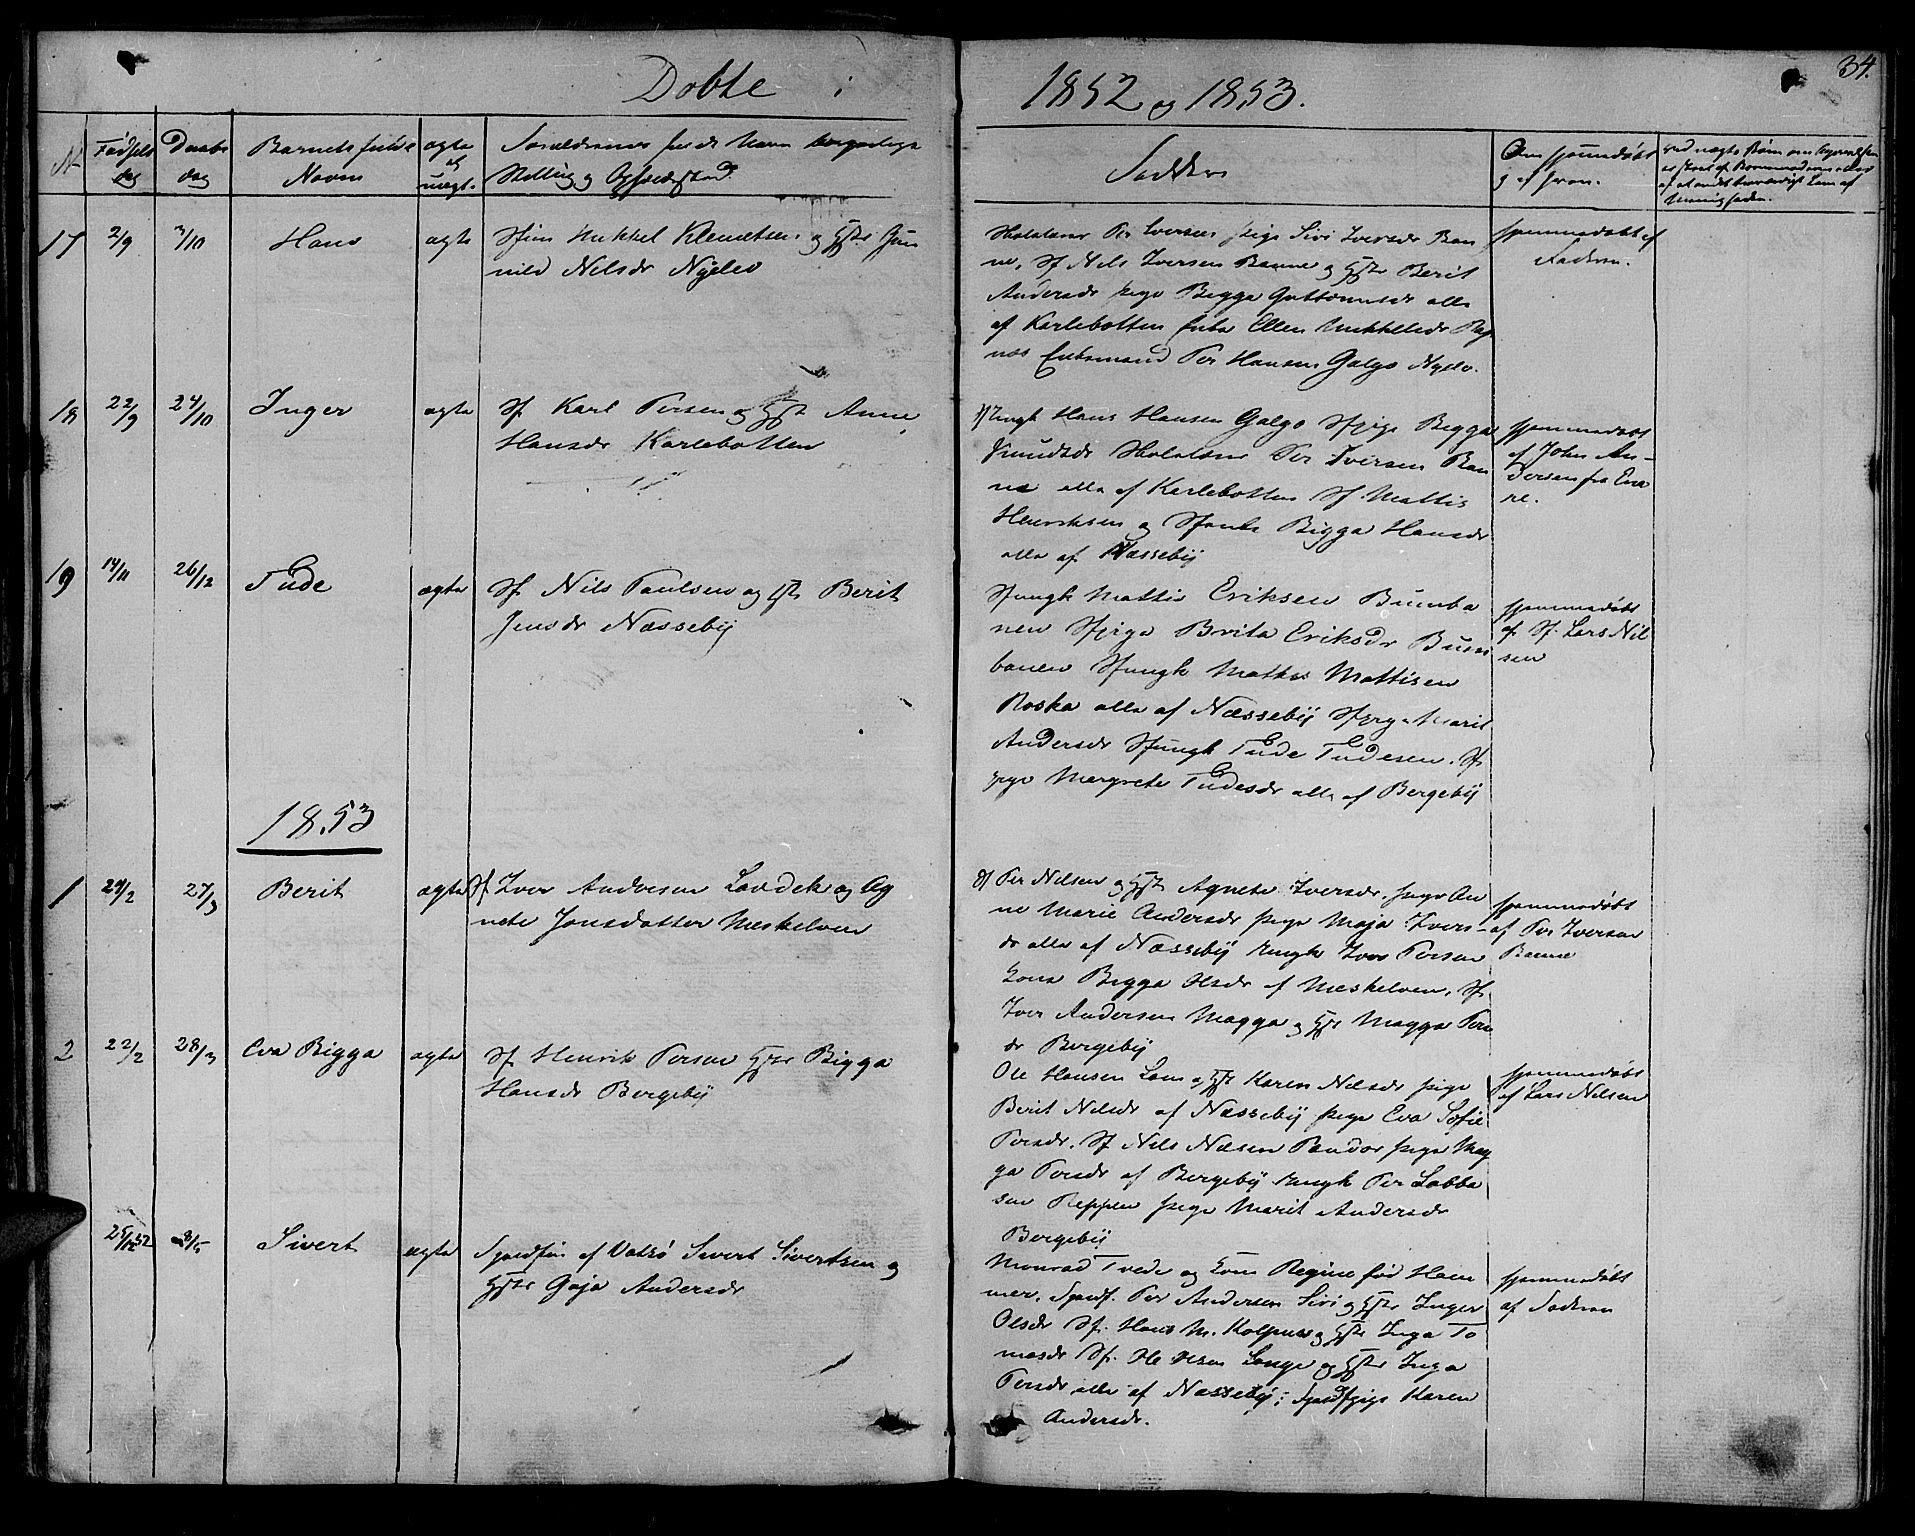 Døbte i 1852 og 1853.
34.
N
Fødsels dag
Daabs dag
Barnets fulde Navn
ægte el uægt.
Forældrenes fulde Navn borgerlige
Stilling og Opholdsted.
Faddere
Om hjemmedøbt
og af hvem.
17
2/9
3/10
Hans
ægte
Mikkel Klemetsen og Hstr Gun
nild Nilsdr Nyelv
Per Iversen pige Siri Iversdr Ban
ne, Sf Nils Iversen Banne og Hstr Berit
Andersdr pige Bigga Guttormsdr alle
af Karlebotten Ellen Mikkelsdr
Enkemand Per Hansen Galgo Nyelv.
hjemmedøbt af
Faderen.
18
22/9
24/10
Inger
ægte
Sf Karl Persen og Hstr Anne
Hansdr Karlebotten
Hans Hansen Galgo Sfpige Bigga
Per Iversen Ban
ne alle af Karlebotten Sf Mattis
Henriksen og Bigga Hansdr
alle af Næsseby
hjemmedøbt
af John An-
dersen fra Ena
re.
19
14/11
26/12
Tude
ægte
Sf Nils Paulsen og Hst Berit
Jensdr Næsseby
Sfungk Mattis Eriksen Bumba
nen Sfpige Brita Eriksdr Bum
banen Sfungk Mathis Mattisen
Roska alle af Næsseby Sfpige Marit
Andersdr Sfungk Tude Tudesen. Sf
pige Margrete Tudesdr alle af Bergeby
hjemmedøbt
af Sf. Lars Nil
sen
1853
1
24/2
27/3
Berit
ægte
Sf Iver Andersen Lavdek og Ag
nete Jonsdatter Meskelven
Per Nilsen og Hstr Agnete Iversdr. pige An
ne Marie Andersdr pige Maja Ivers-
dr alle af Næsseby ungk Iver Persen
Kone Bigga Olsdr af Meskelven, Sf.
Iver Andersen Magga og Hstr Magga Pers
dr Bergeby
hjemmedøbt
af Per Iversen
Banne
2
22/2
28/3
Eva Bigga
ægte
Sf Henrik Persen Hstr Bigga
Hansdr Bergeby
Ole Hansen Lam og Hstr Karen Nilsdr pige
Berit Nilsdr af Næsseby pige Eva Sofie
Persdr. Sf Nils Nilsen Pandor pige Mag
ga Persdr af Bergeby ungk Per Labba
sen Reppen pige Marit Andersdr
Bergeby
hjemmedøbt
af Lars Nilsen
25/12 52
8/5
Sivert
ægte
af Vadsø Sivert Sivertsen og
Hstr Gaja Andersdr
Monrad Tvede og Kone Regine fød Ham
mer, Per Andersen Siri og Hstr Inger
Olsdr Sf. Hans M. Kolpus og Hstr Inga To
masdr Sf. Ole Olsen Lange og Hstr Inga
Persdr alle af Næsseby; Karen
Andersdr.
hjemmedøbt
af Faderen